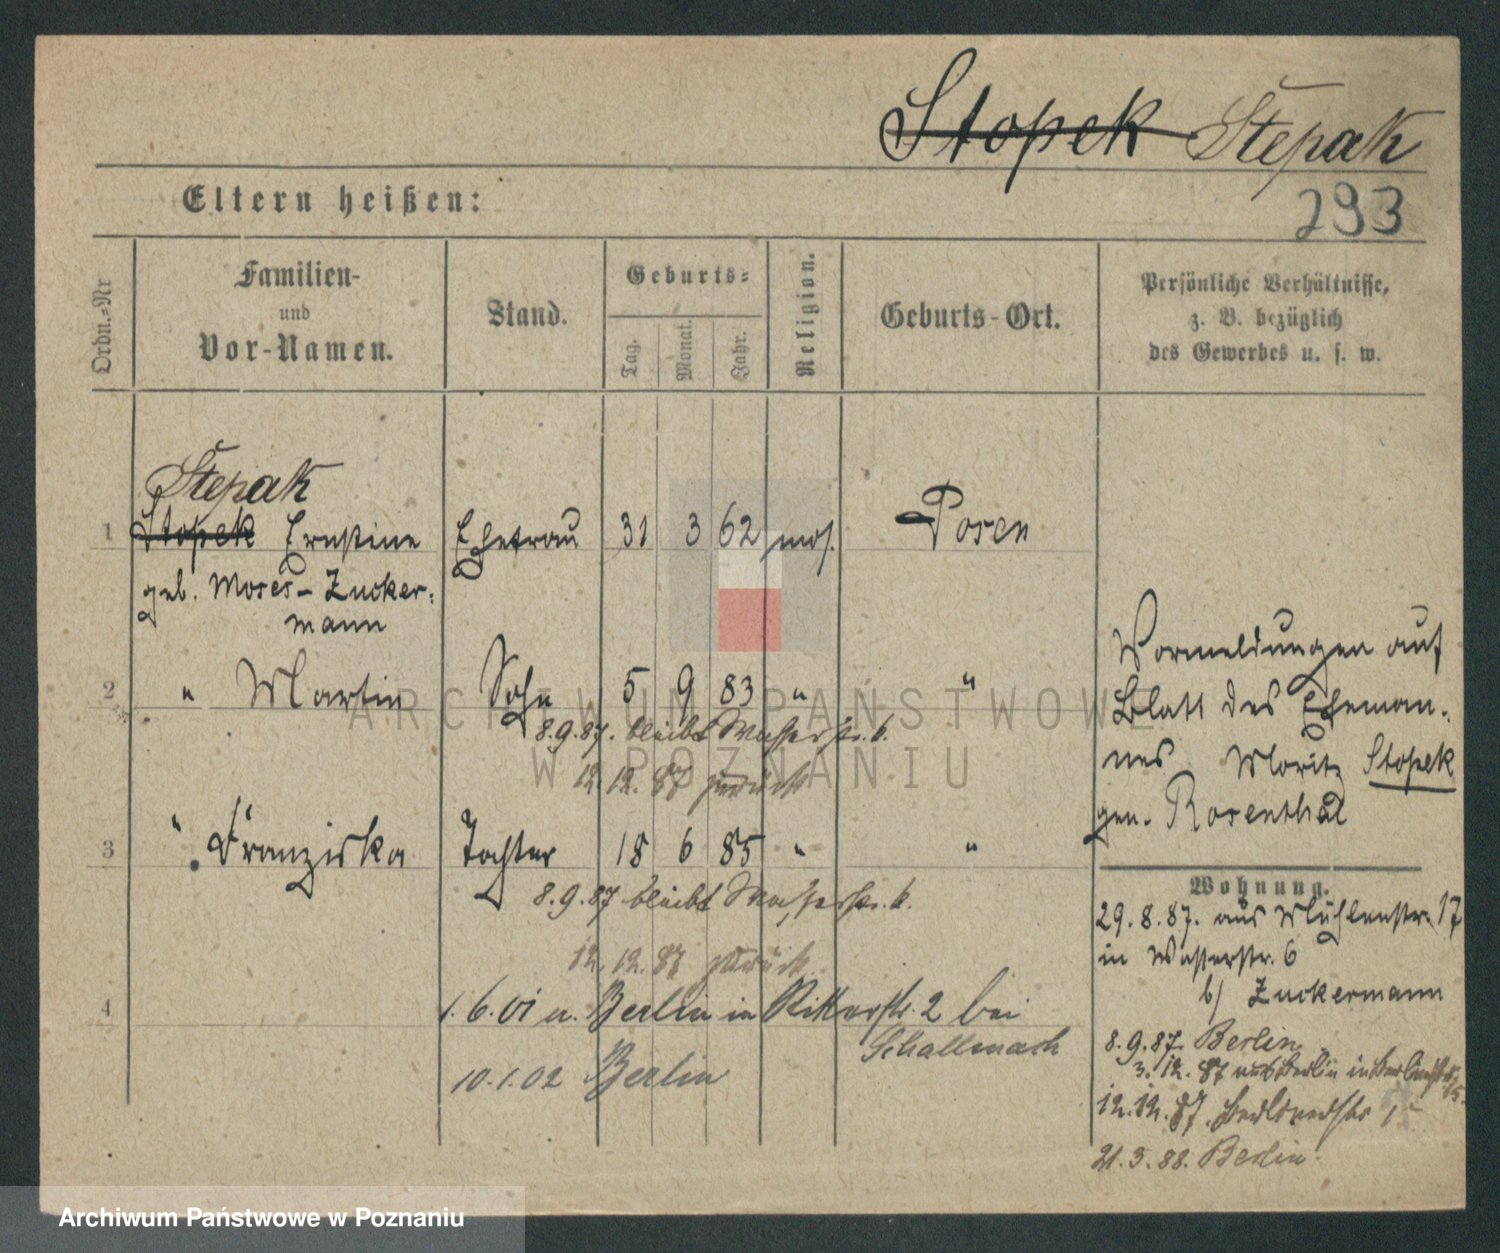 Stopek Stepak
293
Eltern heißen:
Ordn.-Nr
Familien-
und
Vor-Namen.
Stand.
Geburts-
Tag.
Monat.
Jahr.
Religion.
Geburts-Ort.
Persönliche Verhältnisse,
z. B. bezüglich
des Gewerbes u. s. w.
Stepak
1 Stopek Ernstine Ehefrau 31 3 62 mos. Posen
geb. Moses-Zucker-
mann
2 " Martin Sohn 5 9 83 " "
8.9.87. bleibt Wasserstr. 6.
12.12.87 zurück
3 " Franziska Tochter 18 6 85 " "
8.9.87 bleibt Wasserstr. 6.
12.12.87 zurück
4 1.6.01 a. Berlin in Ritterstr. 2 bei
Schallmach
10.1.02 Berlin
Vormeldungen auf
Blatt des Eheman-
nes Moritz Stopek
gen. Rosenthal
Wohnung.
29.8.87. aus Mühlenstr. 17
in Wasserstr. 6
b/ Zuckermann
8.9.87. Berlin
3.12.87 aus Berlin in
12.12.87.
21.3.88. Berlin.
ARCHIWUM PAŃSTWOWE
W POZNANIU
Archiwum Państwowe w Poznaniu